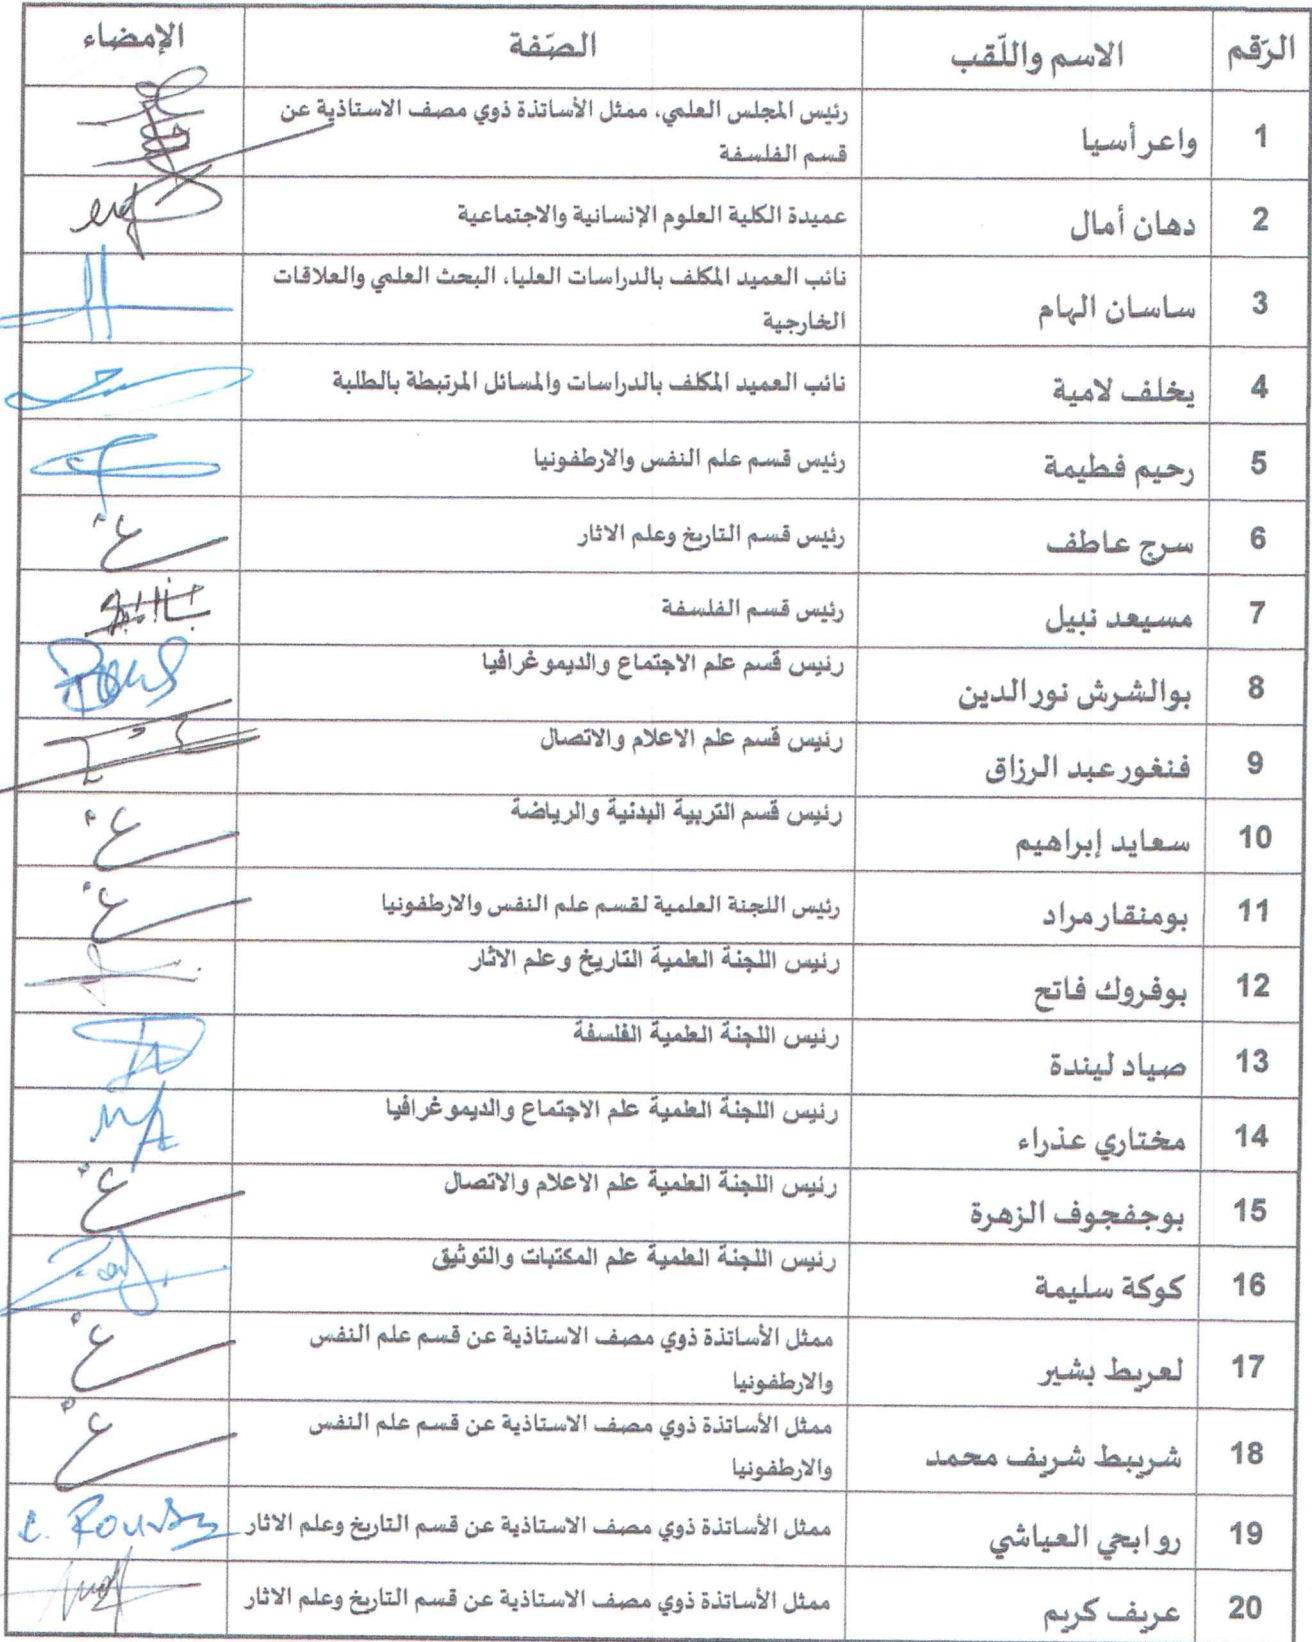 الرّقم الاسم واللّقب الصّفة الإمضاء
1 واعر أسيا رئيس المجلس العلمي، ممثل الأساتذة ذوي مصف الاستاذية عن
قسم الفلسفة
2 دهان أمال عميدة الكلية العلوم الإنسانية والاجتماعية
3 ساسان الهام نائب العميد المكلف بالدراسات العليا، البحث العلمي والعلاقات
الخارجية
4 يخلف لامية نائب العميد المكلف بالدراسات والمسائل المرتبطة بالطلبة
5 رحيم فطيمة رئيس قسم علم النفس والارطفونيا
6 سرج عاطف رئيس قسم التاريخ وعلم الاثار
7 مسيعد نبيل رئيس قسم الفلسفة
8 بوالشرش نورالدين رئيس قسم علم الاجتماع والديموغرافيا
9 فنغور عبد الرزاق رئيس قسم علم الاعلام والاتصال
10 سعايد إبراهيم رئيس قسم التربية البدنية والرياضة
11 بومنقار مراد رئيس اللجنة العلمية لقسم علم النفس والارطفونيا
12 بوفروك فاتح رئيس اللجنة العلمية التاريخ وعلم الاثار
13 صياد ليندة رئيس اللجنة العلمية الفلسفة
14 مختاري عذراء رئيس اللجنة العلمية علم الاجتماع والديموغرافيا
15 بوجفجوف الزهرة رئيس اللجنة العلمية علم الاعلام والاتصال
16 كوكة سليمة رئيس اللجنة العلمية علم المكتبات والتوثيق
17 لعريط بشير ممثل الأساتذة ذوي مصف الاستاذية عن قسم علم النفس
والارطفونيا
18 شريبط شريف محمد ممثل الأساتذة ذوي مصف الاستاذية عن قسم علم النفس
والارطفونيا
19 روابحي العياشي ممثل الأساتذة ذوي مصف الاستاذية عن قسم التاريخ وعلم الاثار
20 عريف كريم ممثل الأساتذة ذوي مصف الاستاذية عن قسم التاريخ وعلم الاثار